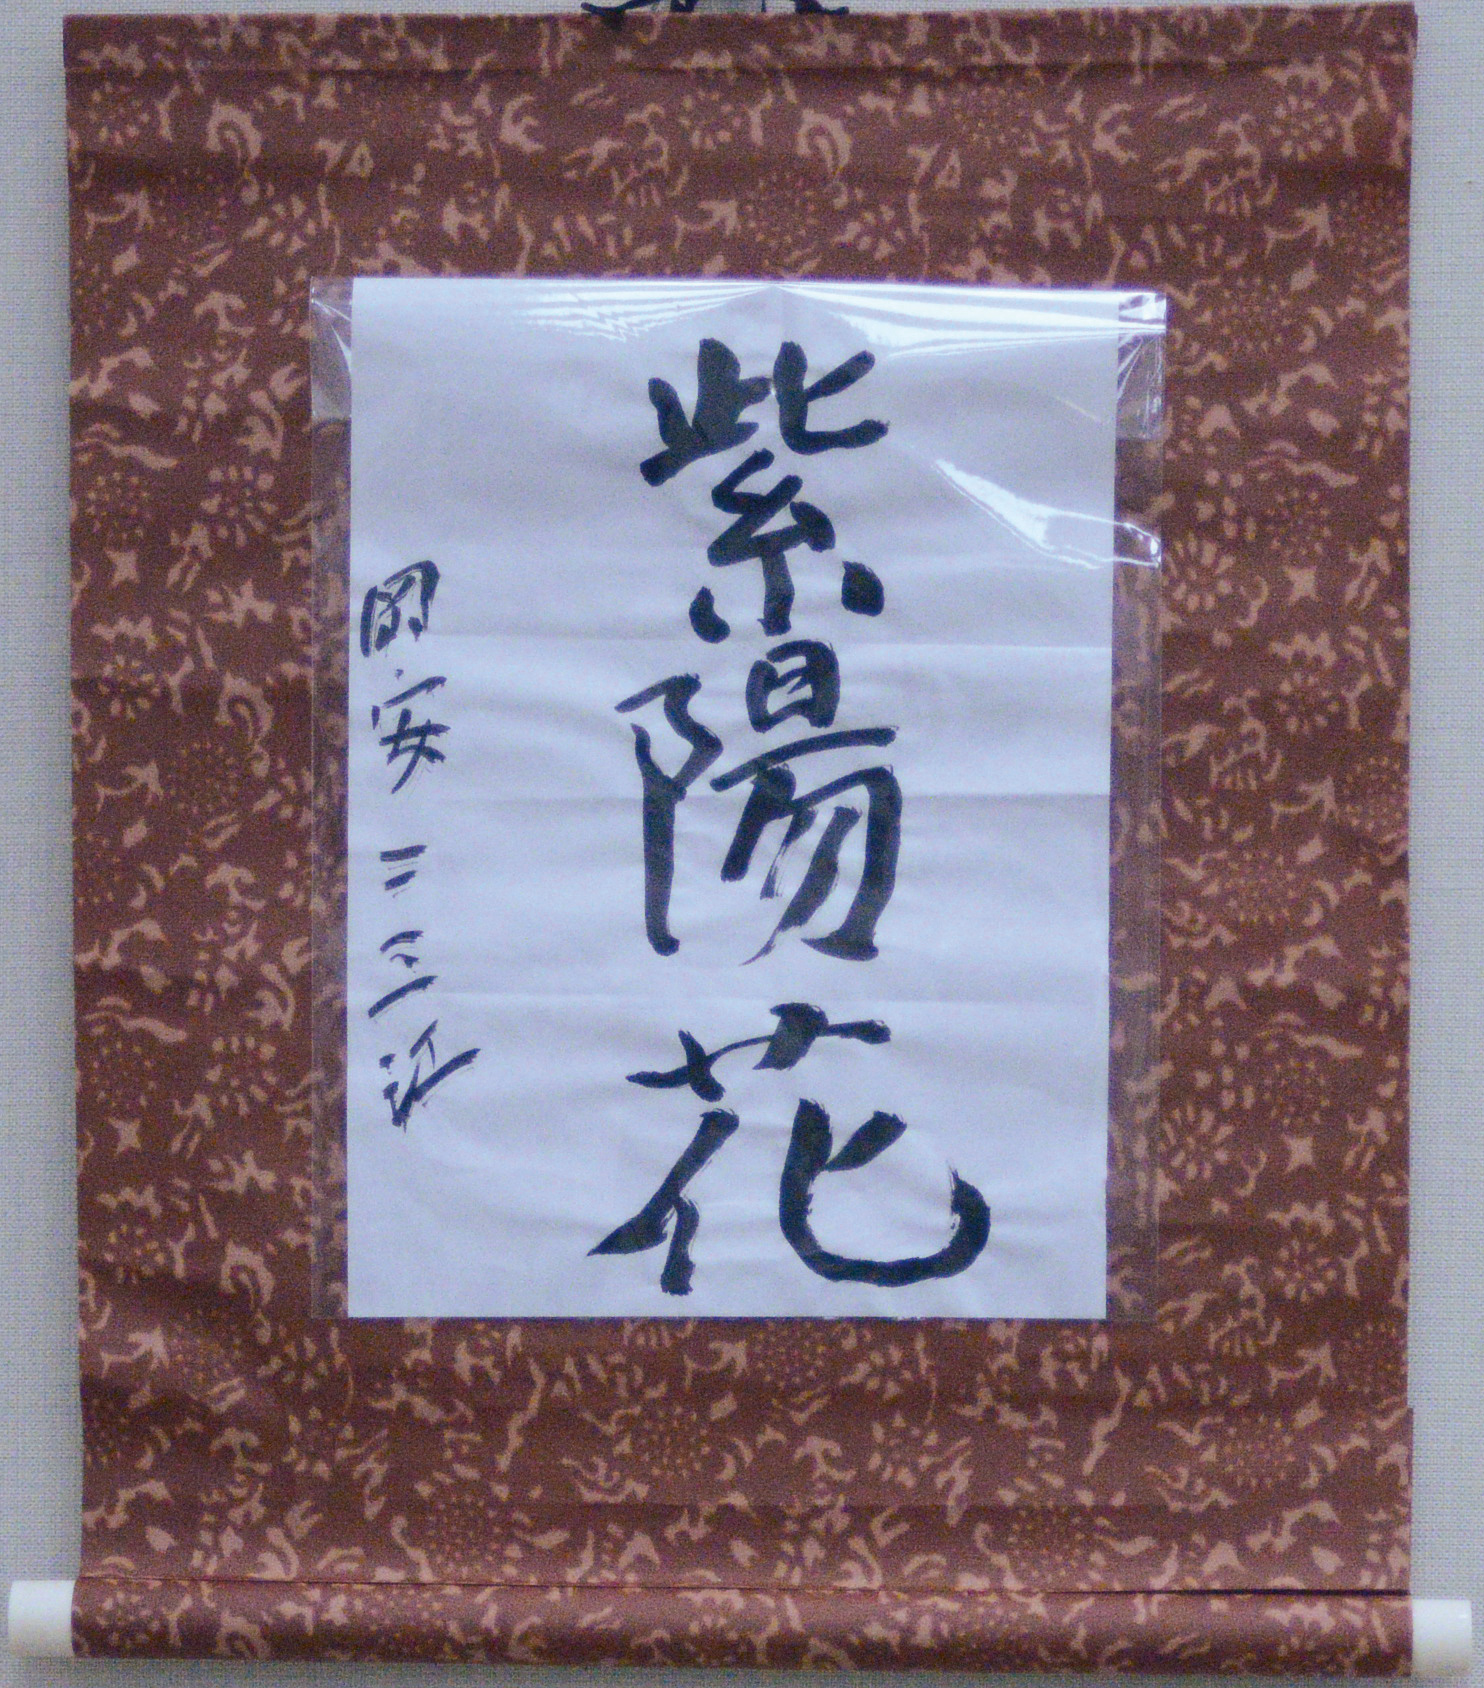 紫陽花
岡安 三三江